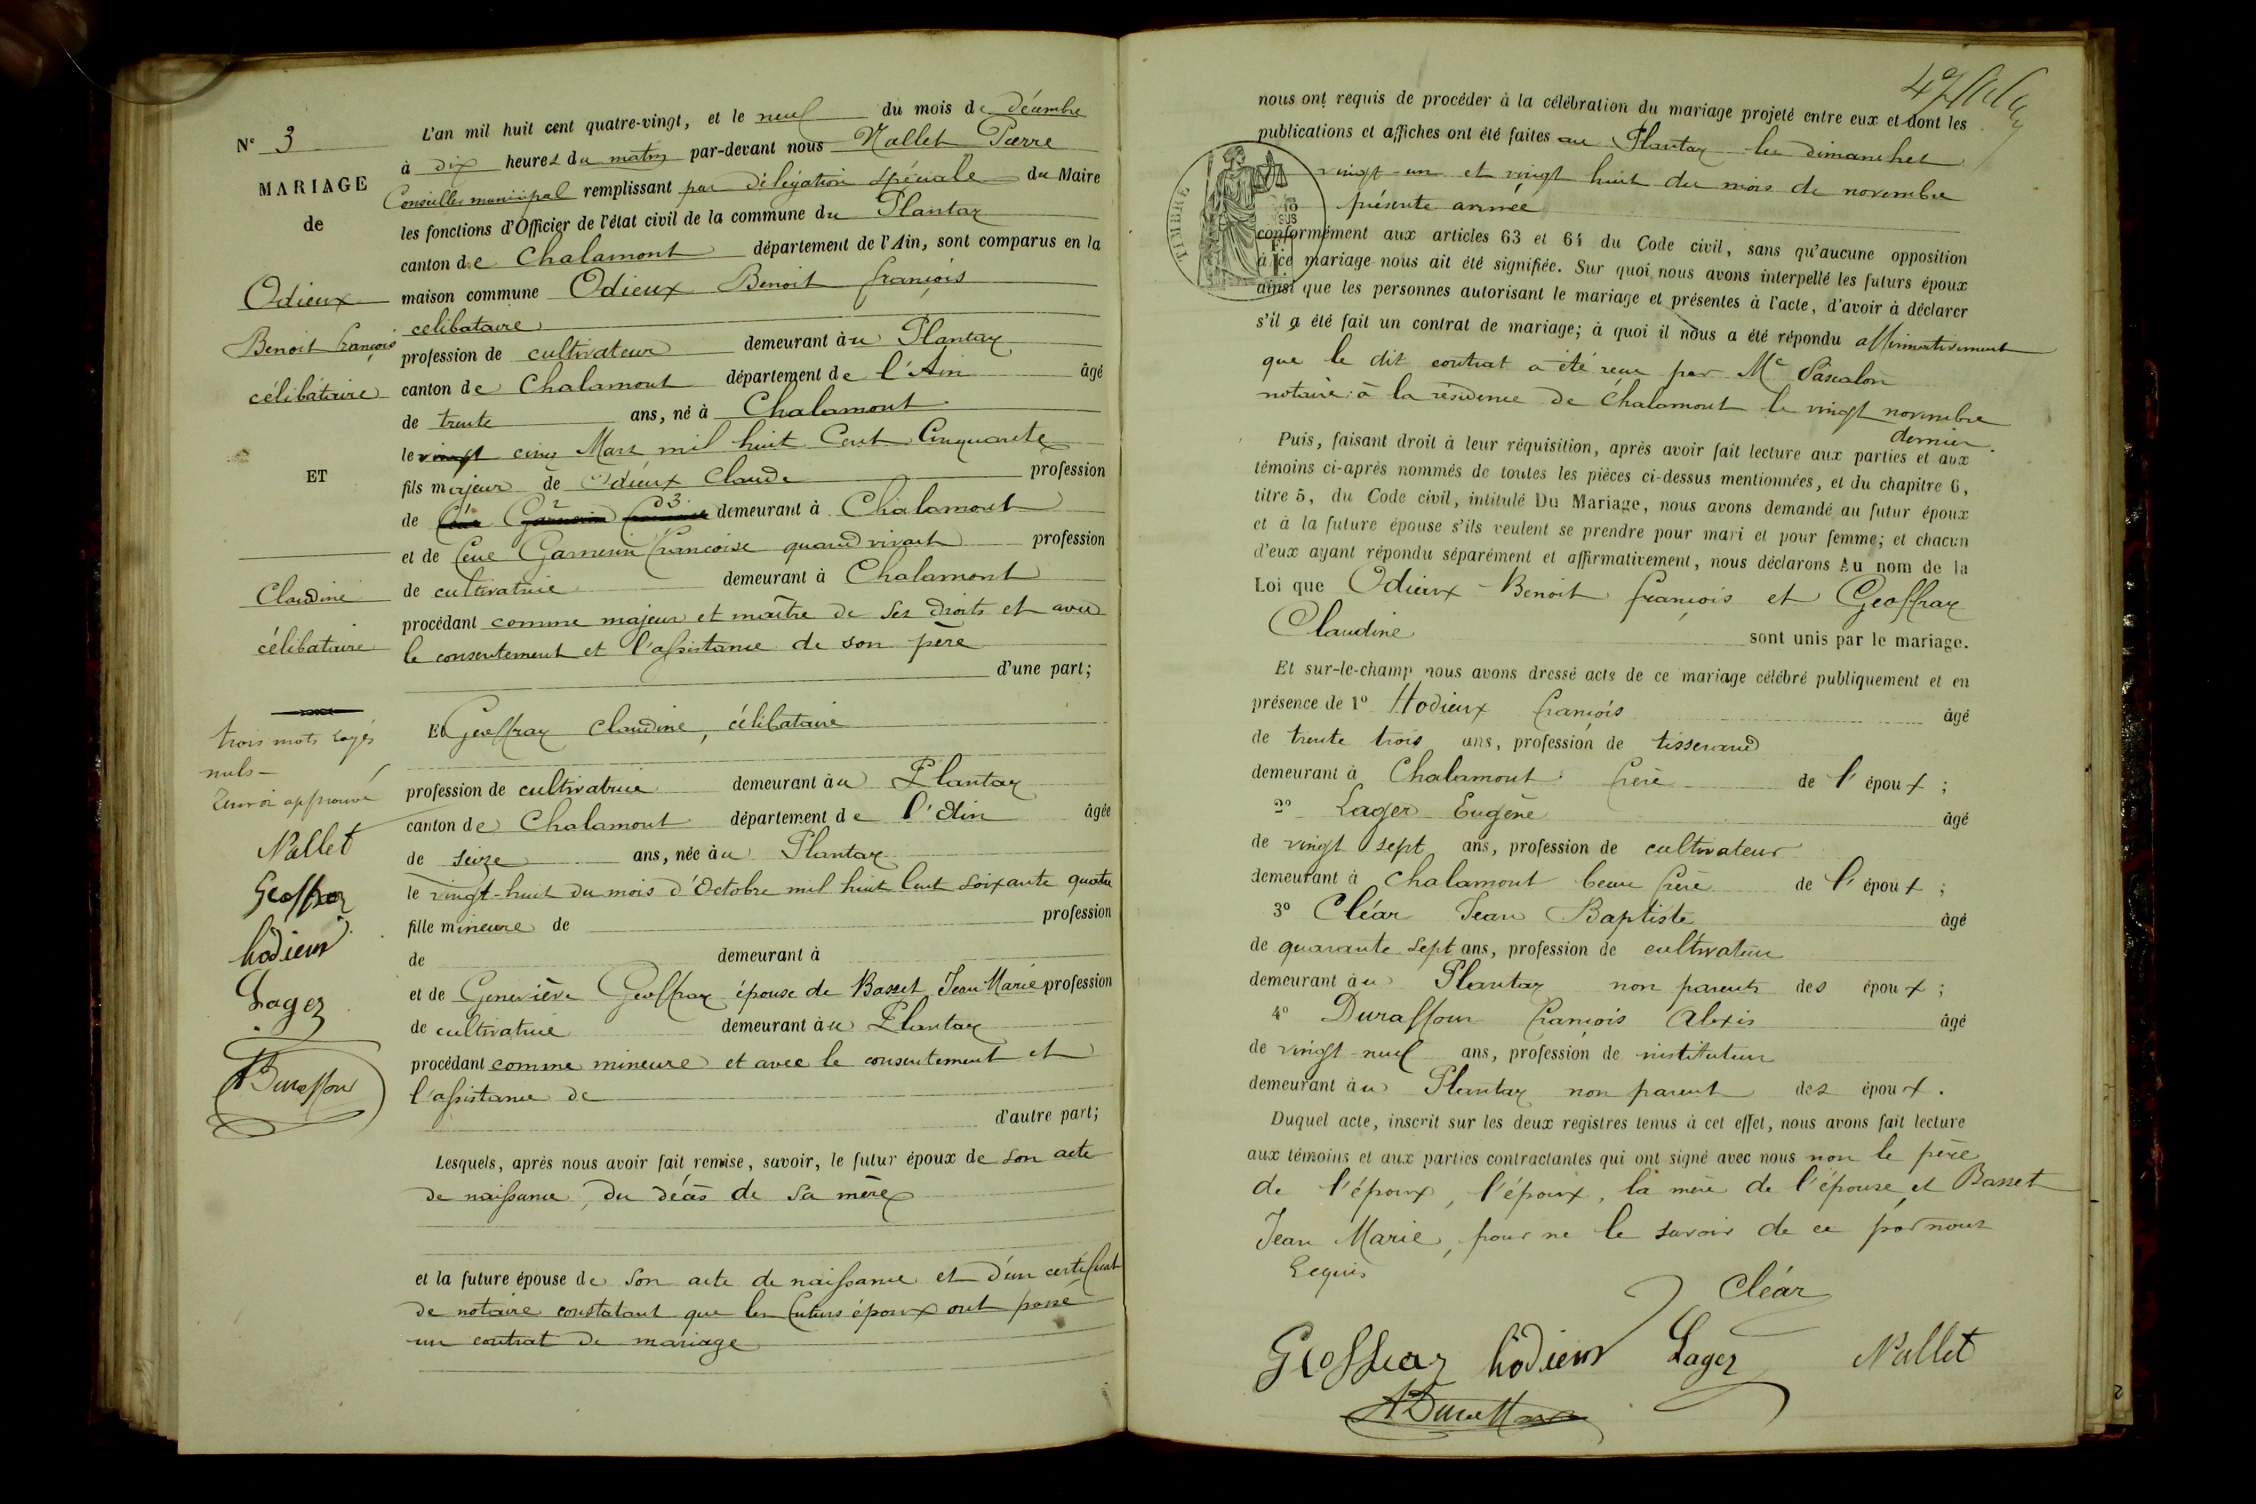 N° 3
MARIAGE
de
Odieux
Benoit françois
célibataire
ET
Claudine
célibataire
trois mots rayés
nuls
Renvoi approuvé
Nallet
Geoffray
hodieux
Lager
ADuraffour
L'an mil huit cent quatre-vingt, et le neuf du mois de décembre
à dix heures du matin par-devant nous Nallet Pierre
Conseiller municipal remplissant par délégation spéciale du Maire
les fonctions d'Officier de l'état civil de la commune du Plantay
canton de Chalamont département de l'Ain, sont comparus en la
maison commune Odieux Benoit françois
célibataire
profession de cultivateur demeurant au Plantay
canton de Chalamont département de l'Ain âgé
de trente ans, né à Chalamont
le vingt cinq Mars mil huit Cent Cinquante
fils majeur de Odieux Claude profession
de demeurant à Chalamont
et de feue Garnerin françoise quand vivait profession
de cultivatrice demeurant à Chalamont
procédant comme majeur et maître de ses droits et avec
le consentement et l'assistance de son père
d'une part;
Et Geoffray Claudine, célibataire
profession de cultivatrice demeurant au Plantay
canton de Chalamont département de l'Ain âgée
de seize ans, née au Plantay
le vingt-huit du mois d'Octobre mil huit Cent soixante quatre
fille mineure de profession
de demeurant à
et de Geneviève Geoffray épouse de Basset Jean Marie profession
de cultivatrice demeurant au Plantay
procédant comme mineure et avec le consentement et
l'assistance de
d'autre part;
Lesquels, après nous avoir fait remise, savoir, le futur époux de son acte
de naissance, du décès de sa mère
et la future épouse de son acte de naissance et d'un certificat
de notaire constatant que les futurs époux ont passé
un contrat de mariage
nous ont requis de procéder à la célébration du mariage projeté entre eux et dont les
publications et affiches ont été faites au Plantay les dimanches
vingt-un et vingt huit du mois de novembre
présente année
TIMBRE
conformément aux articles 63 et 64 du Code civil, sans qu'aucune opposition
à ce mariage nous ait été signifiée. Sur quoi nous avons interpellé les futurs époux
ainsi que les personnes autorisant le mariage et présentes à l'acte, d'avoir à déclarer
s'il a été fait un contrat de mariage; à quoi il nous a été répondu affirmativement
que le dit contrat a été reçu par Me Pascalon
notaire à la résidence de Chalamont le vingt novembre
dernier
Puis, faisant droit à leur réquisition, après avoir fait lecture aux parties et aux
témoins ci-après nommés de toutes les pièces ci-dessus mentionnées, et du chapitre 6,
titre 5, du Code civil, intitulé Du Mariage, nous avons demandé au futur époux
et à la future épouse s'ils veulent se prendre pour mari et pour femme; et chacun
d'eux ayant répondu séparément et affirmativement, nous déclarons Au nom de la
Loi que Odieux Benoit françois et Geoffray
Claudine sont unis par le mariage.
Et sur-le-champ nous avons dressé acte de ce mariage célébré publiquement et en
présence de 1° Hodieux françois âgé
de trente trois ans, profession de tisserand
demeurant à Chalamont frère de l'époux;
2° Lager Eugène âgé
de vingt sept ans, profession de cultivateur
demeurant à Chalamont beau frère de l'époux;
3° Cléar Jean Baptiste âgé
de quarante sept ans, profession de cultivateur
demeurant au Plantay non parents des époux;
4° Duraffour françois Alexis âgé
de vingt-neuf ans, profession de instituteur
demeurant au Plantay non parent des époux.
Duquel acte, inscrit sur les deux registres tenus à cet effet, nous avons fait lecture
aux témoins et aux parties contractantes qui ont signé avec nous non le père
de l'époux, l'époux, la mère de l'épouse et Basset
Jean Marie, pour ne le savoir de ce par nous
Requis
Cléar
Geoffray hodieux Lager Nallet
ADuraffour